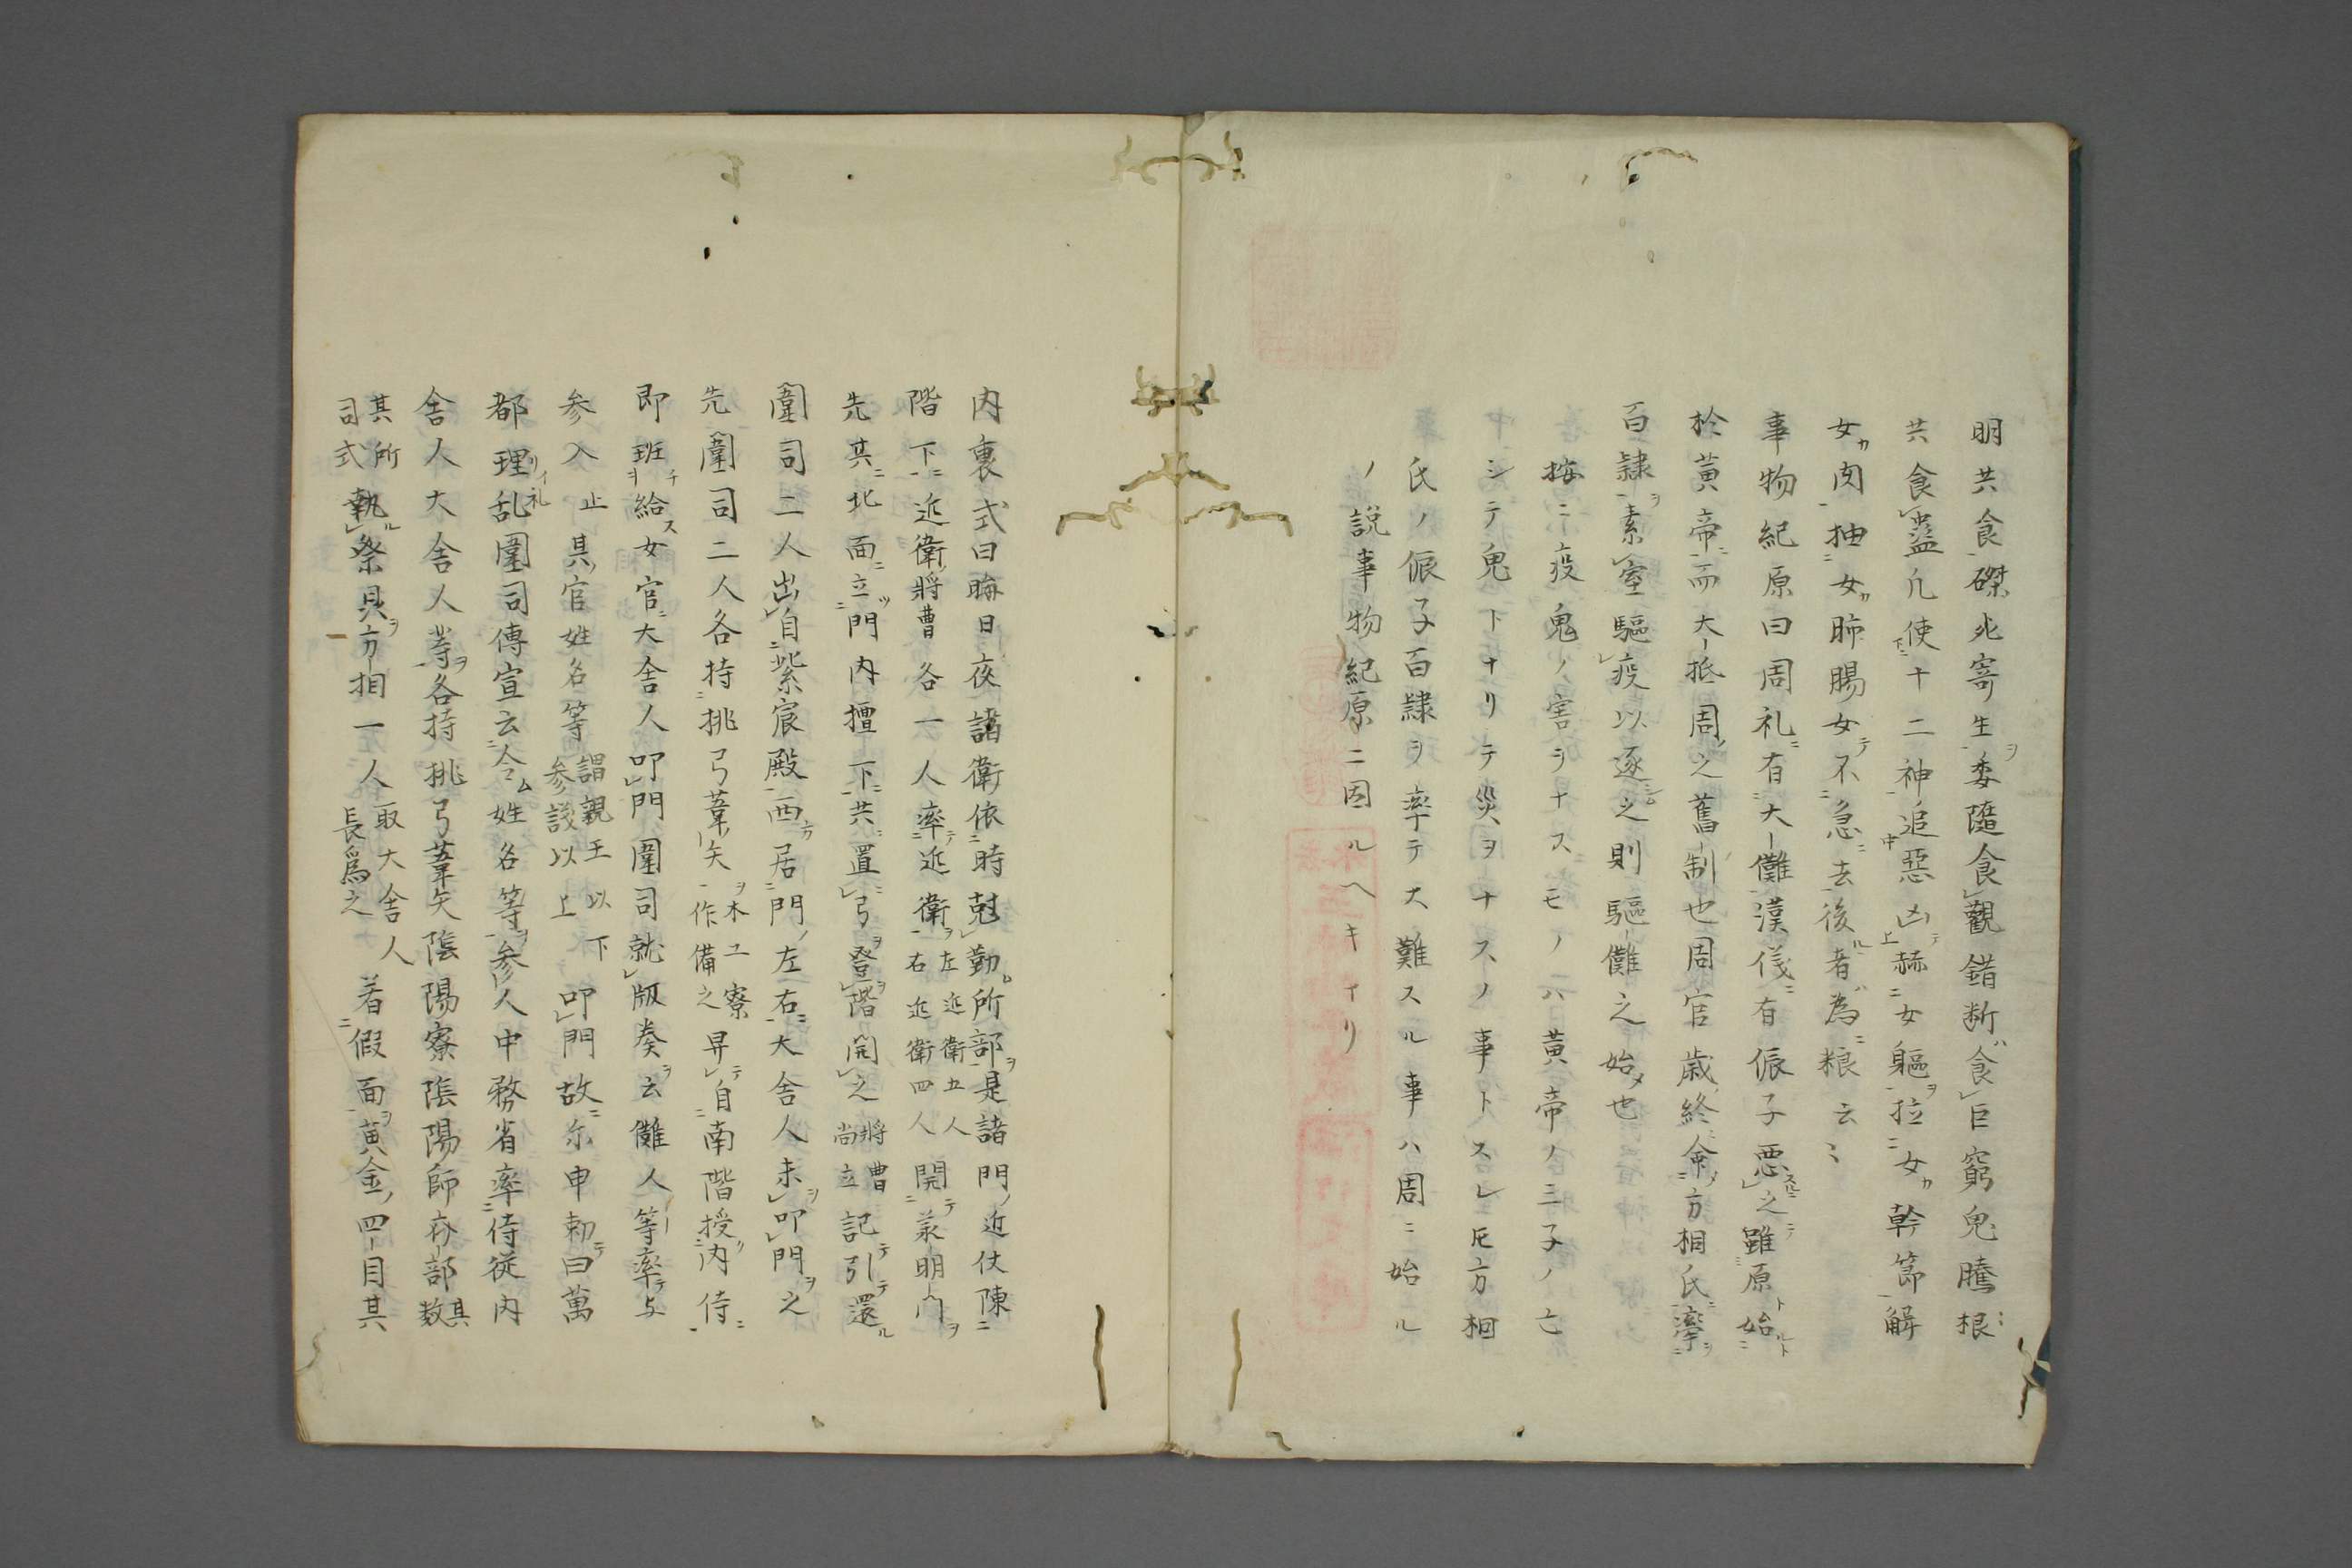 明共食磔死寄生委隨食觀錯断食巨窮鬼騰根
共食蠱凡使十二神追惡凶赫女軀拉女幹節解
女肉抽女肺腸女不急去後者為粮云〻
事物紀原曰周礼有大儺漢儀有侲子悪之雖原始
於黄帝而大抵周之舊制也周官歳終命方相氏率
百隷素室驅疫以逐之則驅儺之始也
按ニ疫鬼ノ害ヲナスモノハ黄帝ノ三子ノ亡
シテ鬼トナリテ災ヲナスノ事トスレ𪜈方相
氏ノ侲子百隷ヲ率テ大難スル事ハ周ニ始ル
ノ説事物紀原ニ因ルヘキナリ
内裏式曰晦日夜諸衛依時尅勤所部是諸門近仗陳
階下近衛將曹各一人率近衛左近衛五人右近衛四人開承明門
先其北面立門内擅下共置弓登階開之將曹尚立記引還
圍司二人出自紫宸殿西居門左右大舎人未叩門之
先圍司二人各持挑弓葦矢木工寮作備之昇自南階授内侍
即班給女官大舎人叩門圍司就版奏云儺人等率与
参入止具官姓名等謂親王以下参議以上叩門故尓申勅曰萬
都理乱圍司傳宣云令姓名等参人中務省率侍従内
舎人大舎人等各持挑弓葦矢陰陽寮陰陽師斎部其数
其所司式執祭具方相一人取大舎人長爲之着假面黄金四目其